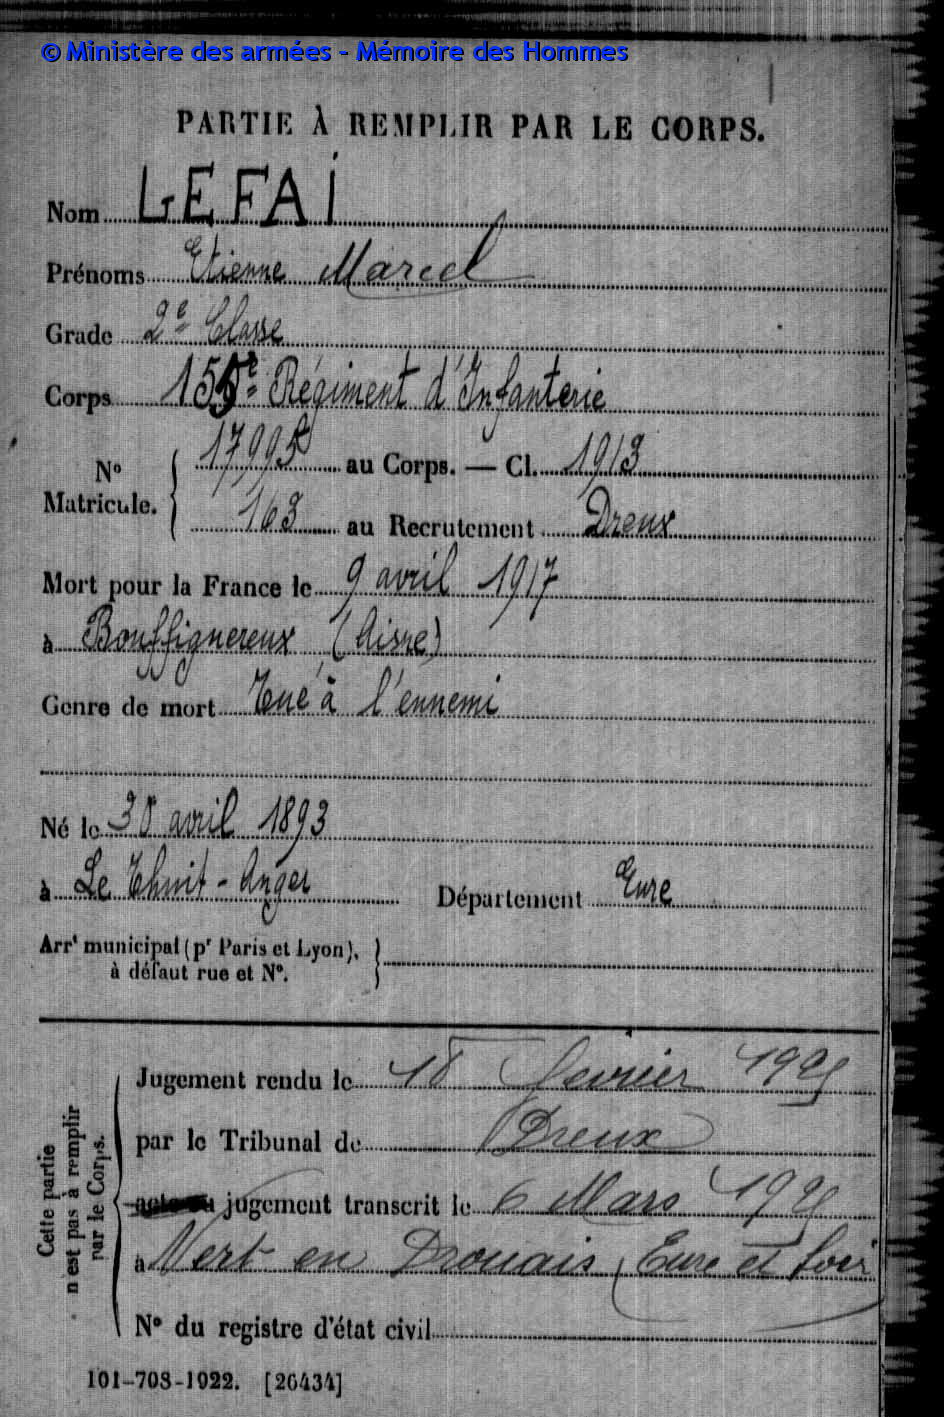 © Ministère des armées - Mémoire des Hommes
PARTIE À REMPLIR PAR LE CORPS.
Nom LEFAI
Prénoms Etienne Marcel
Grade 2e Classe
Corps 155e Régiment d'Infanterie
No Matricule. 17995 au Corps. — Cl. 1913
163 au Recrutement Dreux
Mort pour la France le 9 avril 1917
à Bouffignereux (Aisne)
Genre de mort Tué à l'ennemi
Né le 30 avril 1893
à Le Thuit-Anger Département Eure
Arrt municipal (pr Paris et Lyon),
à défaut rue et No.
Cette partie
n'est pas à remplir
par le Corps.
Jugement rendu le 18 février
par le Tribunal de Dreux
jugement transcrit le 6 Mars
à Vert en Drouais (Eure et Loir
No du registre d'état civil
101-708-1922. [26434]